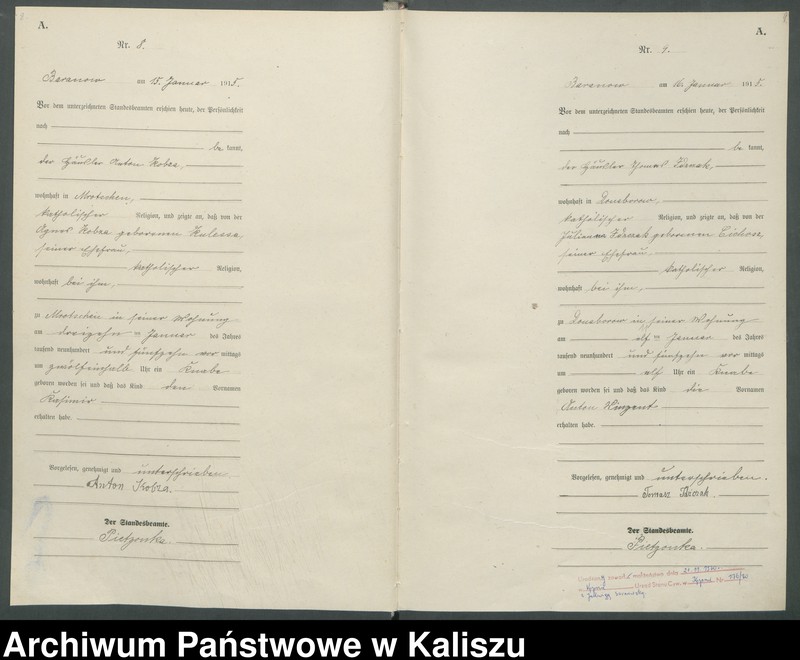 A.
Nr. 8.
Baranow am 15. Januar 1915.
Vor dem unterzeichneten Standesbeamten erschien heute, der Persönlichkeit
nach
be kannt,
der Häusler Anton Kobza,
wohnhaft in Mrotschen,
katholischer Religion, und zeigte an, daß von der
Agnes Kobza geborenen Kulessa,
seiner Ehefrau,
katholischer Religion,
wohnhaft bei ihm,
zu Mrotschen in seiner Wohnung
am dreizehn ten Januar des Jahres
tausend neunhundert und fünfzehn vor mittags
um zwölfeinhalb Uhr ein Knabe
geboren worden sei und daß das Kind den Vornamen
Kasimir
erhalten habe.
Vorgelesen, genehmigt und unterschrieben.
Anton Kobza.
Der Standesbeamte.
Pietzonka.
A.
Nr. 9.
Baranow am 16. Januar 1915.
Vor dem unterzeichneten Standesbeamten erschien heute, der Persönlichkeit
nach
be kannt,
der Häusler Thomas
wohnhaft in Donaborow,
katholischer Religion, und zeigte an, daß von der
geborenen Cichosz,
seiner Ehefrau,
katholischer Religion,
wohnhaft bei ihm,
zu Donaborow in seiner Wohnung
am elf ten Januar des Jahres
tausend neunhundert und fünfzehn vor mittags
um elf Uhr ein Knabe
geboren worden sei und daß das Kind die Vornamen
Anton Vinzent
erhalten habe.
Vorgelesen, genehmigt und unterschrieben.
Tomasz
Der Standesbeamte.
Pietzonka.
Archiwum Państwowe w Kaliszu